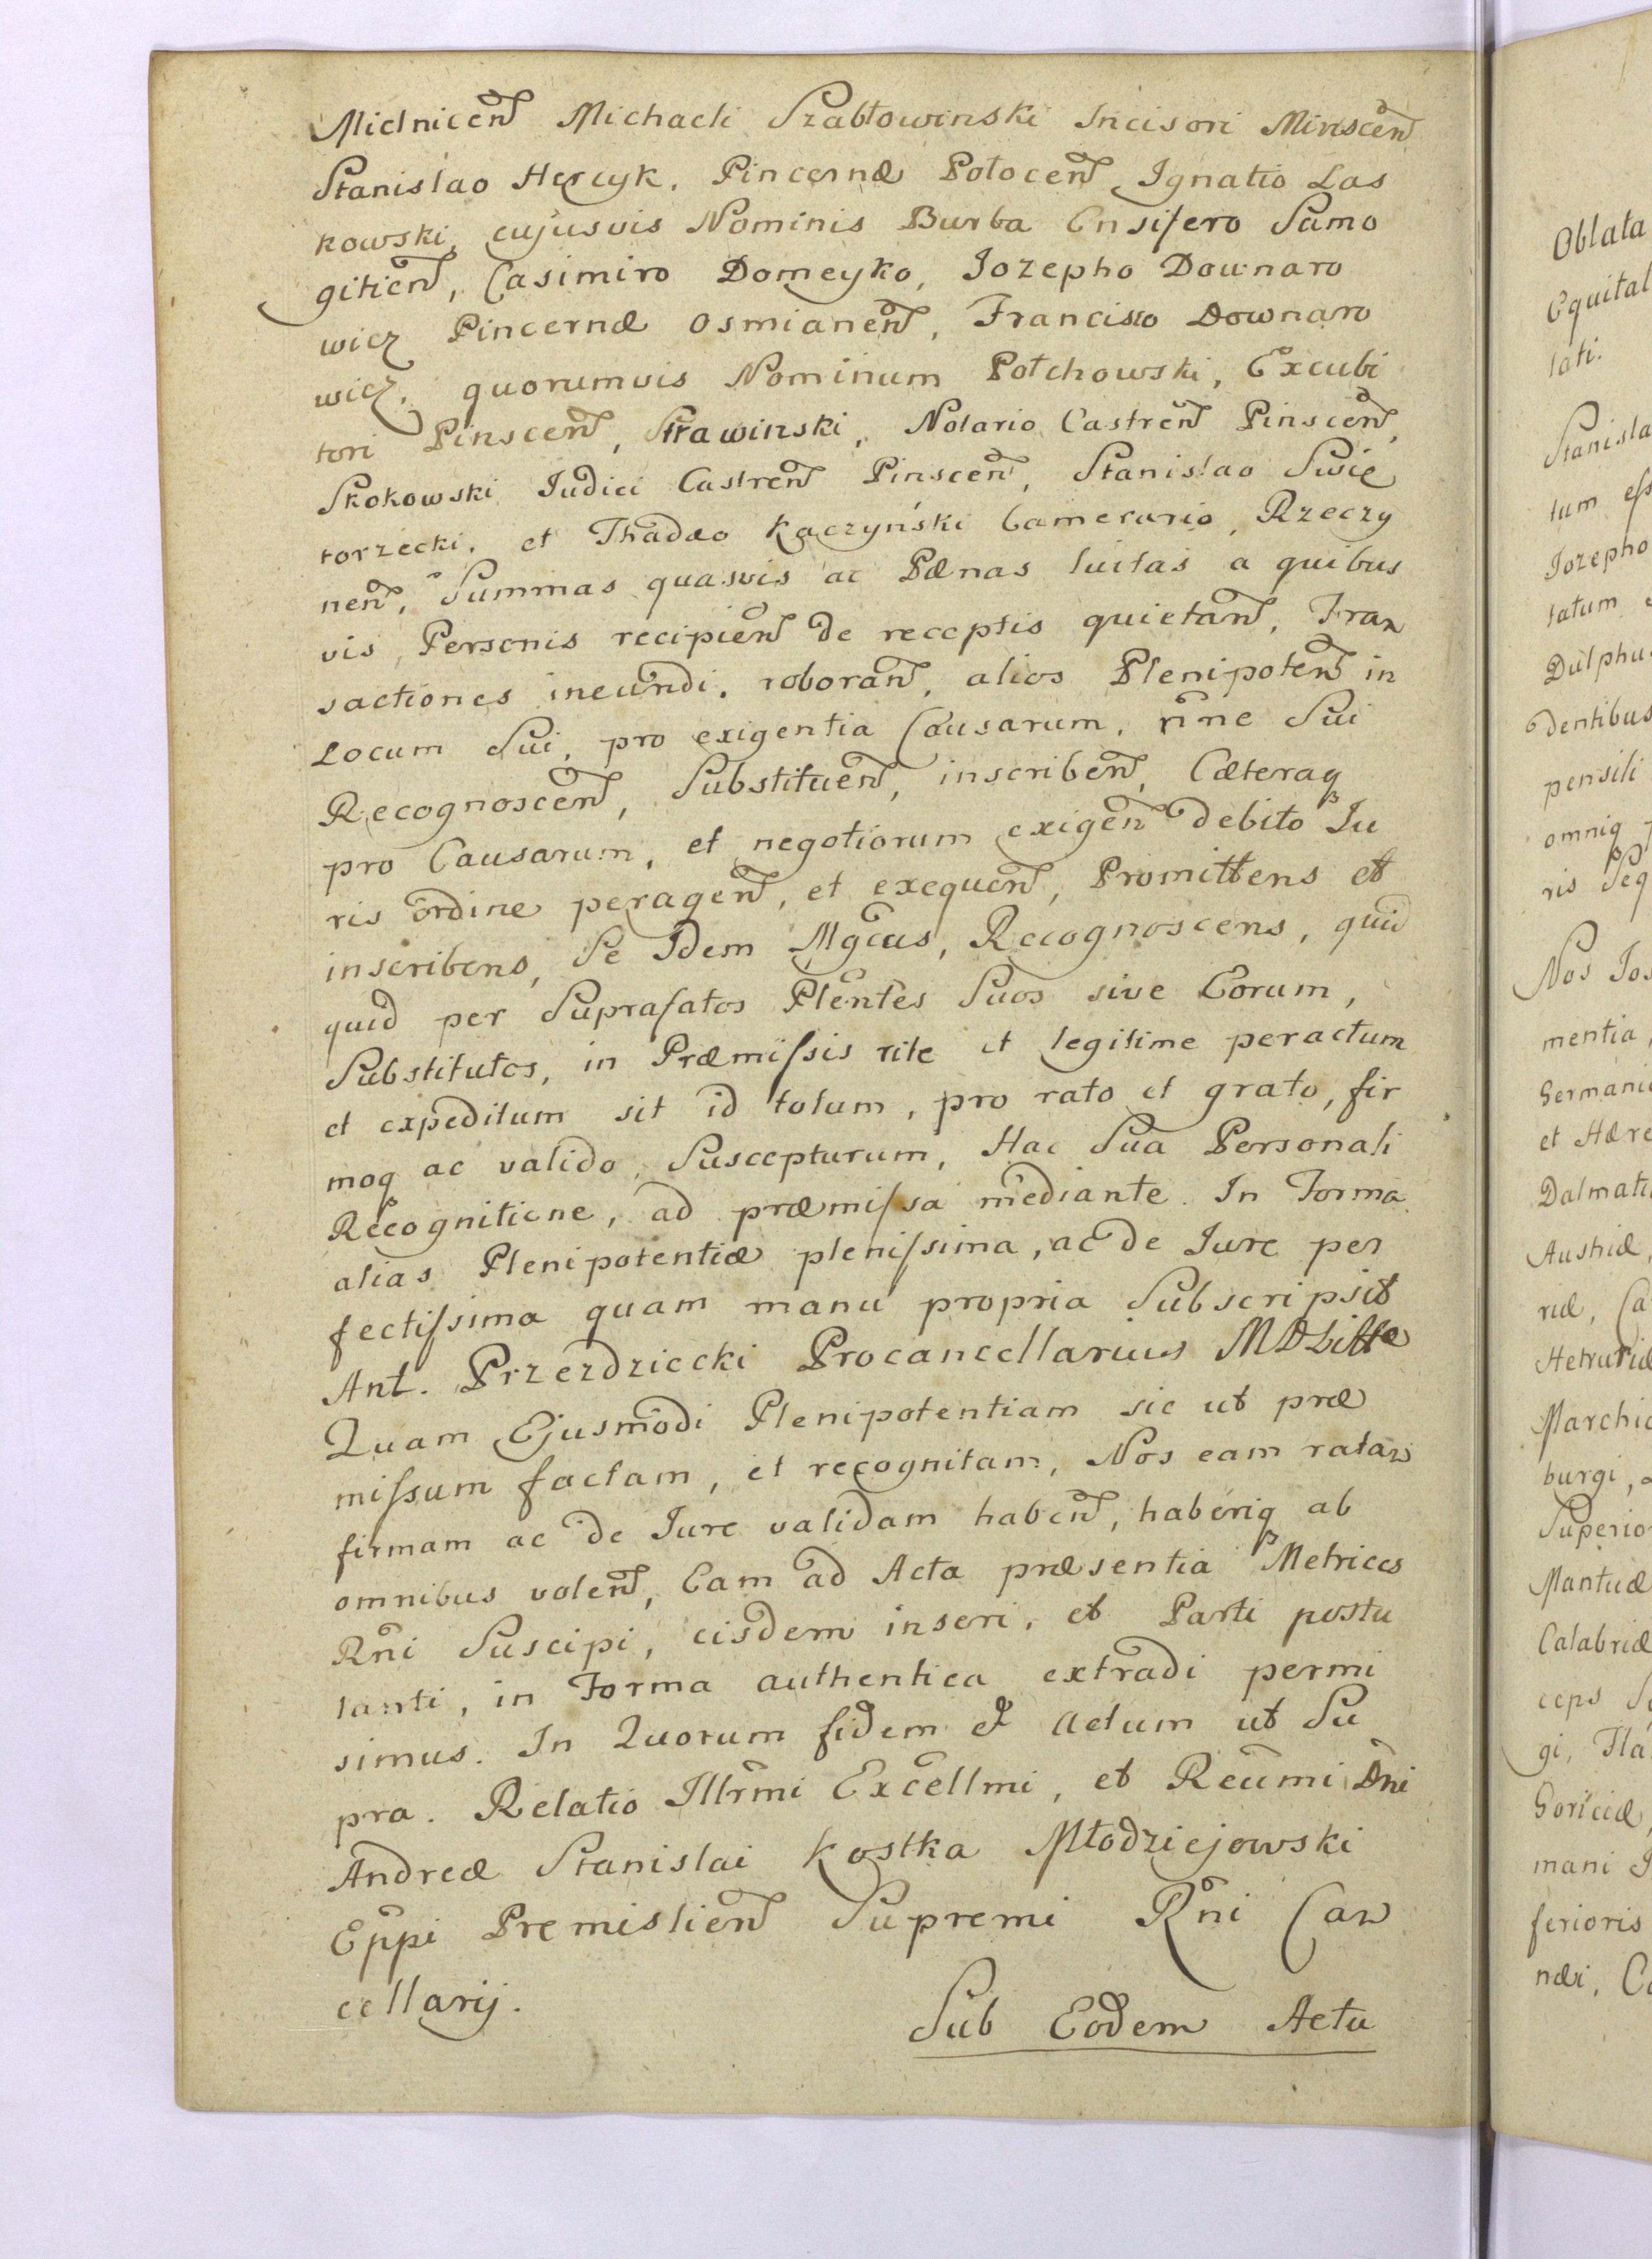 Mielnicen̄ Michaeli Szabłowinski Incisori Minscen̄
Stanislao Hercyk, Pincernæ Połocen̄ Ignatio Las
kowski, cujusvis Nominis Burba Ensifero Samo
gitien̄, Casimiro Domeyko, Jozepho Downaro
wicz Pincernæ Osmianen̄, Francisco Downaro
wicz, quorumvis Nominum Połchowski, Excubi
tori Pinscen̄, Strawinski, Notario Castren̄ Pinscen̄,
Skokowski Judici Castren̄ Pinscen̄, Stanislao Swię
torzecki, et Thadæo Kaczyński Camerario Rzeczy
nen̄, Summas quasvis ac Pænas luitas a quibus
vis Personis recipien̄ de receptis quietan̄, Tran
sactiones ineundi, roboran̄, alios Plenipoten̄ in
Locum Sui, pro exigentia Causarum, n̄ine Sui
Recognoscen̄, Substituen̄, inscriben̄, Cæteraq
pro Causarum, et negotiorum exigen̄ debito Ju
ris ordine peragen̄, et exequen̄, Promittens et
inscribens, Se Idem Mg̃cus, Recognoscens, quid
quid per Suprafatos Plen̄tes Suos sive Eorum,
Substitutos, in Præmissis rite et legitime peractum
et expeditum sit id totum, pro rato et grato, fir
moq ac valido, Suscepturum, Hac Sua Personali
Recognitione, ad præmissa mediante. In Forma
alias Plenipotentiæ plenissima, ac de Jure per
fectissima quam manu propria Subscripsit
Ant. Przezdziecki Procancellarius MDLitte
Quam Ejusmodi Plenipotentiam sic ut præ
missum factam, et recognitam, Nos eam ratam
firmam ac de Jure validam haben̄, haberiq ab
omnibus volen̄, Eam ad Acta præsentia Metrices
Rñi Suscipi, eisdem inseri, et Parti postu
lanti, in Forma authentica extradi permi
simus. In Quorum fidem & Actum ut Su
pra. Relatio Illr̃mi Excellm̃i, et Reu̅mi Dñi
Andreæ Stanislai Kostka Młodziejowski
Ep̃pi Premislien̄ Supremi Rñi Can
cellarij.
Sub Eodem Actu
Oblata
Equital
lati.
Stanisla
tum ess
Jozepho
latum
Dulphu
dentibus
pensili
omniq
ris Seq
Nos Jos
mentia,
Germani
et Hære
Dalmati
Austriæ,
riæ, Ca
Hetruriæ
Marchi
burgi,
Superio
Mantuæ
Calabriæ
ceps S
gi, Fla
Goriciæ,
mani I
ferioris
næi, C